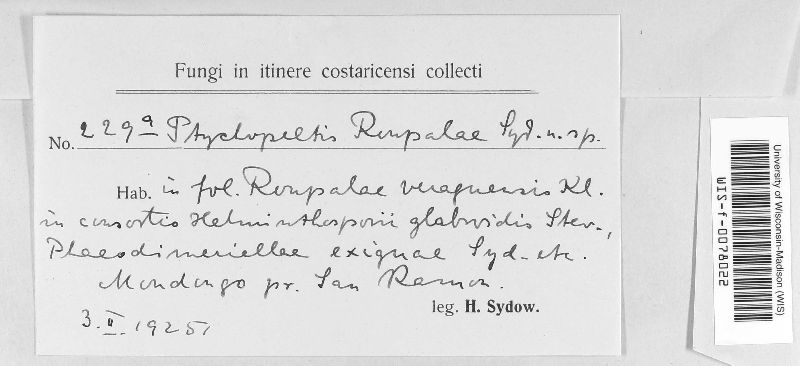 Fungi in itinere costaricensi collecti
No. 229a Ptychopeltis Roupalae Syd. n. sp.
Hab. in fol. Roupalae veraguensis Kl.
in consortio Helminthosporii glabroidis Stev.,
Phaeodimeriellae exiguae Syd. etc.
Mondongo pr. San Ramon.
leg. H. Sydow.
3. II. 1925
University of Wisconsin-Madison (WIS)
WIS-f-0078022